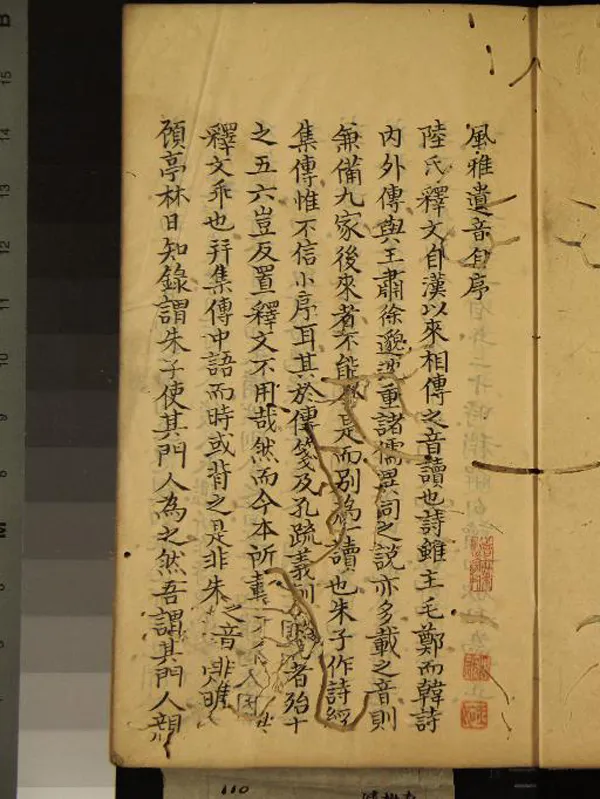 風雅遺音自序
陸氏釋文自漢以來相傳之音讀也詩雖主毛鄭而韓詩
内外傳與王肅徐邈沈重諸儒異同之說亦多載之音則
兼備九家後來者不能是而别為一讀也朱子作詩經
集傳惟不信小序耳其於傳箋及孔疏義訓者殆十
之五六豈反置釋文不用哉然而今本所載
釋文乖也幷集傳中語而時或背之是非朱之音非唯
顧亭林日知錄謂朱子使其門人為之然吾謂其門人親
110